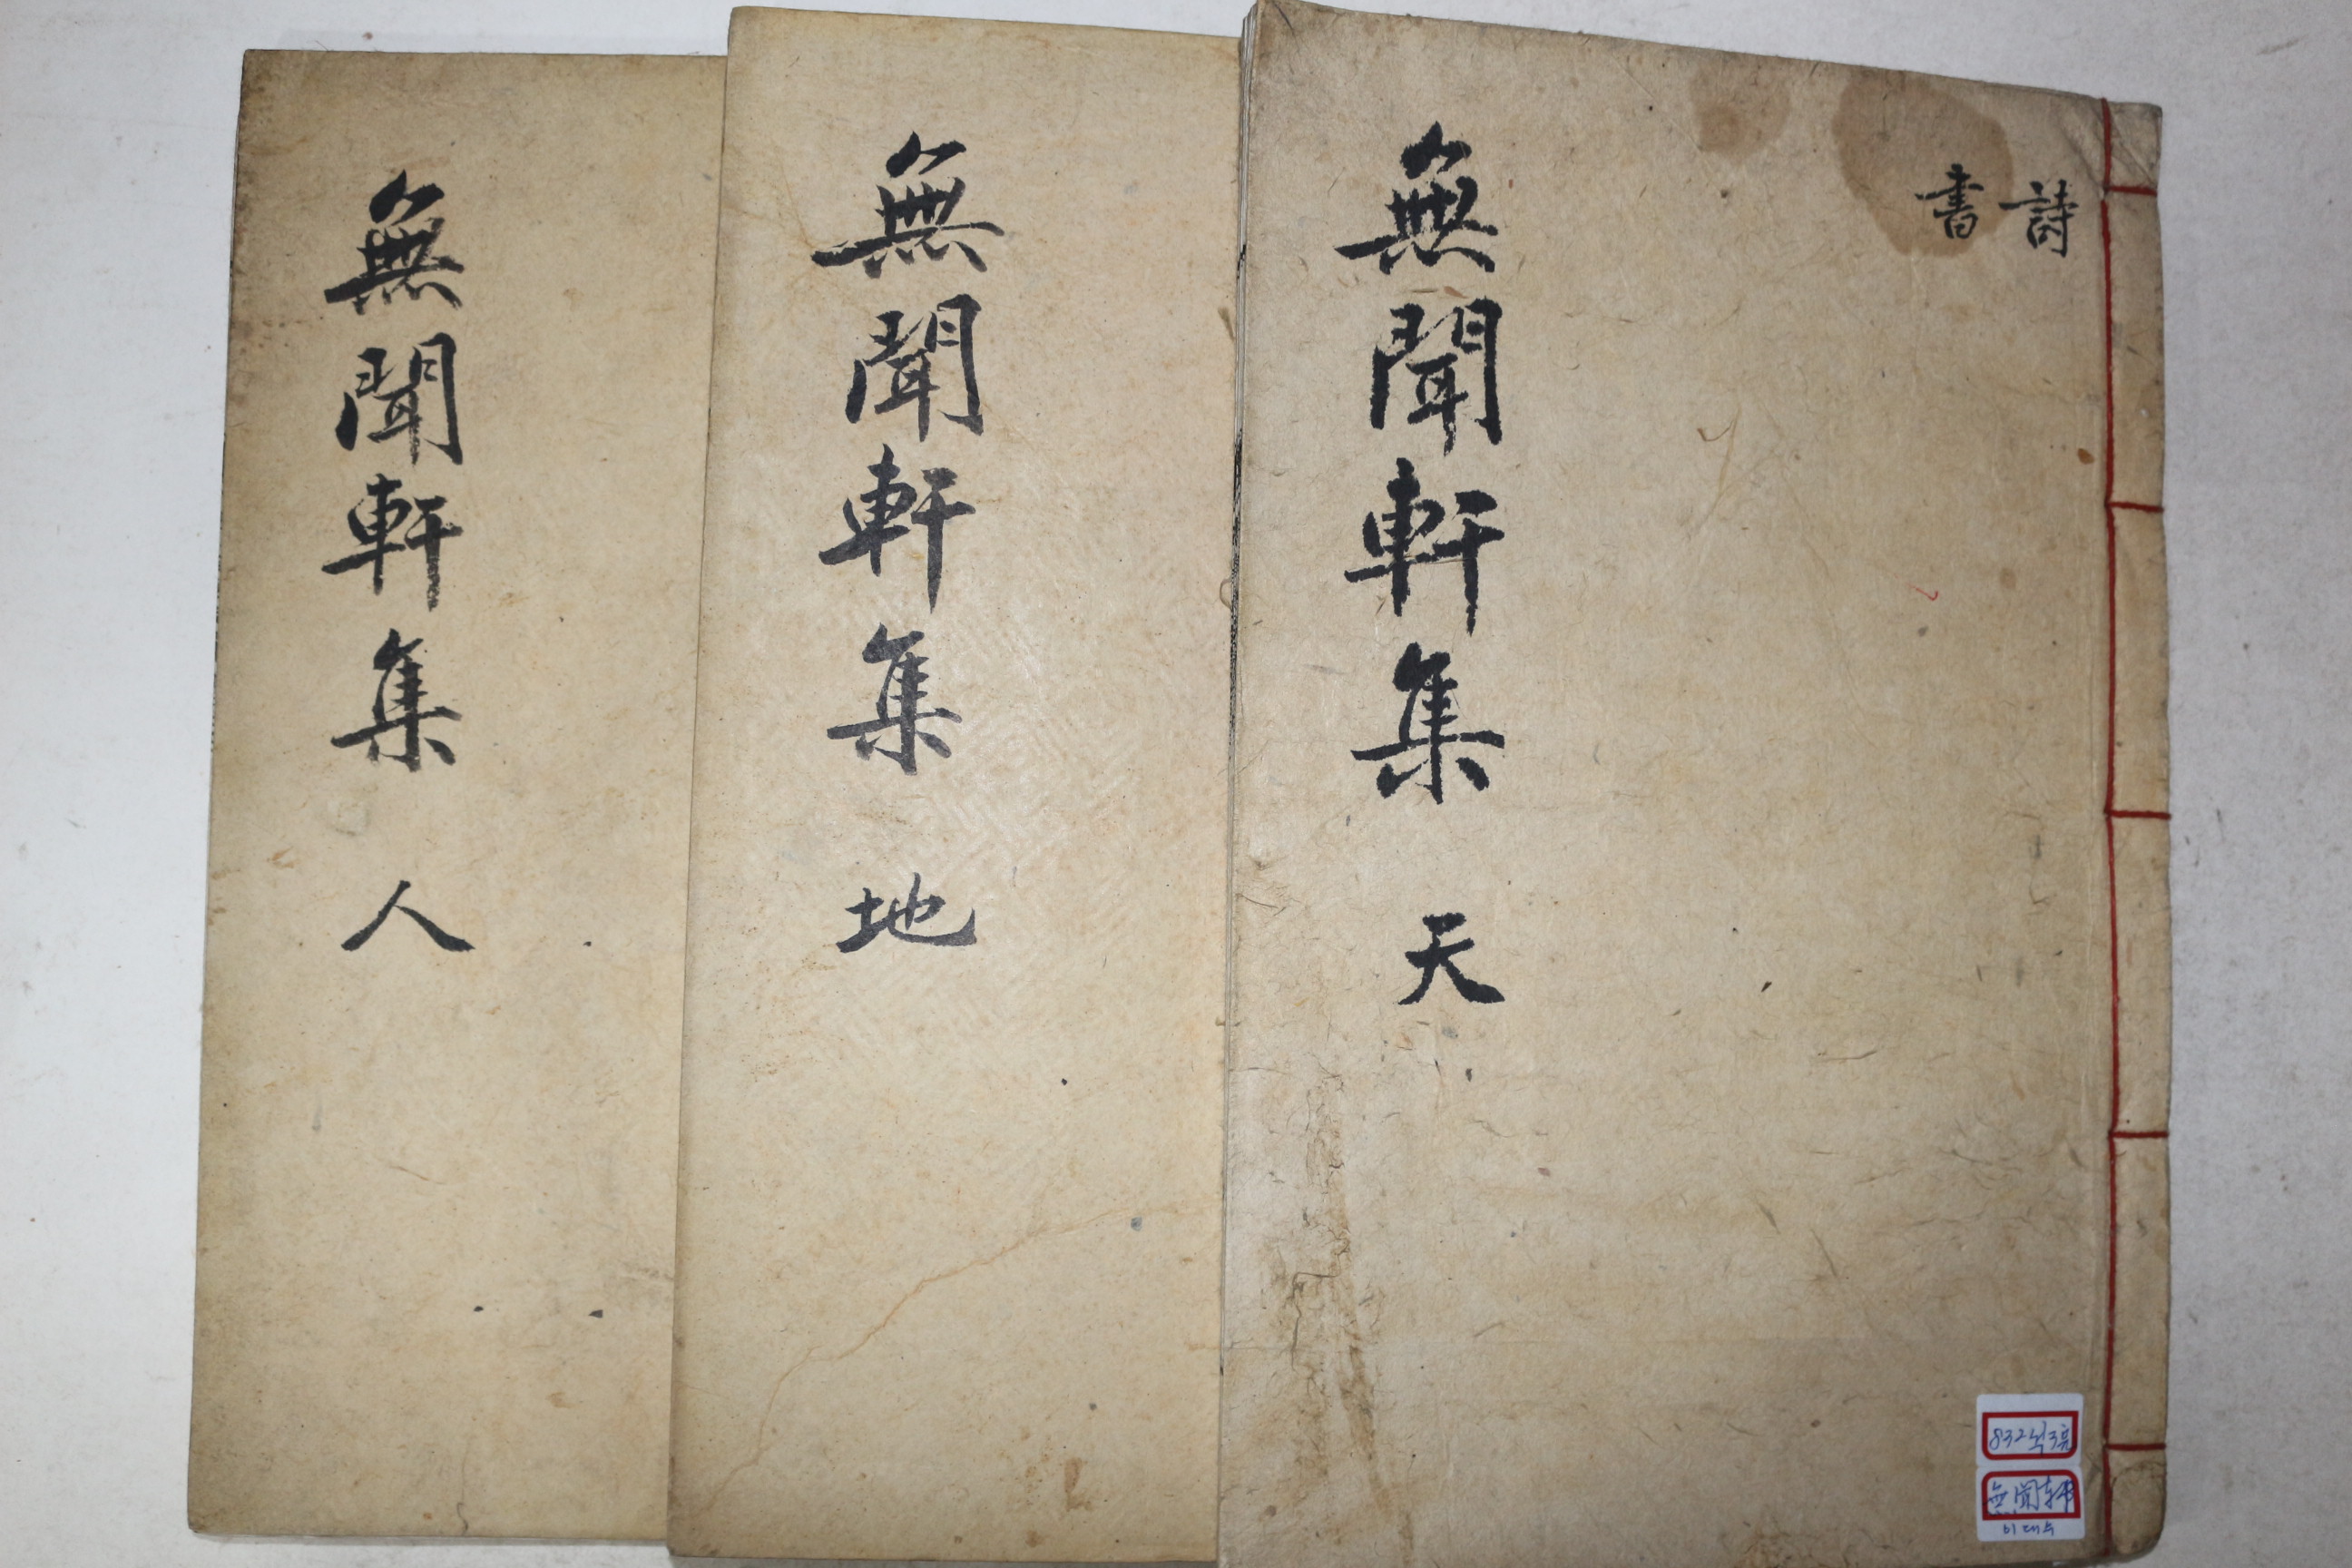 詩
書
無聞軒集 天
無聞軒集 地
無聞軒集 人
無聞軒